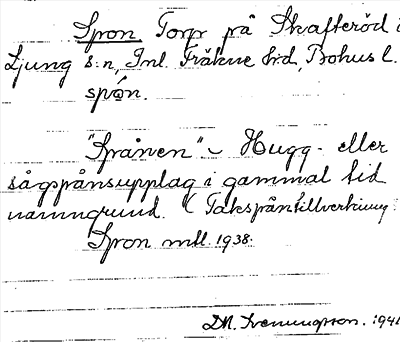 Spron Torp på Skafteröd i
Ljung s:n, Inl. Fräkne hd, Bohus l.
spó̱n.
"Spånen" - Hugg- eller
sågspånsupplag i gammal tid
namngrund. (Takspåntillverkning
Spron mtl. 1938.
DM. Svenungsson. 1941